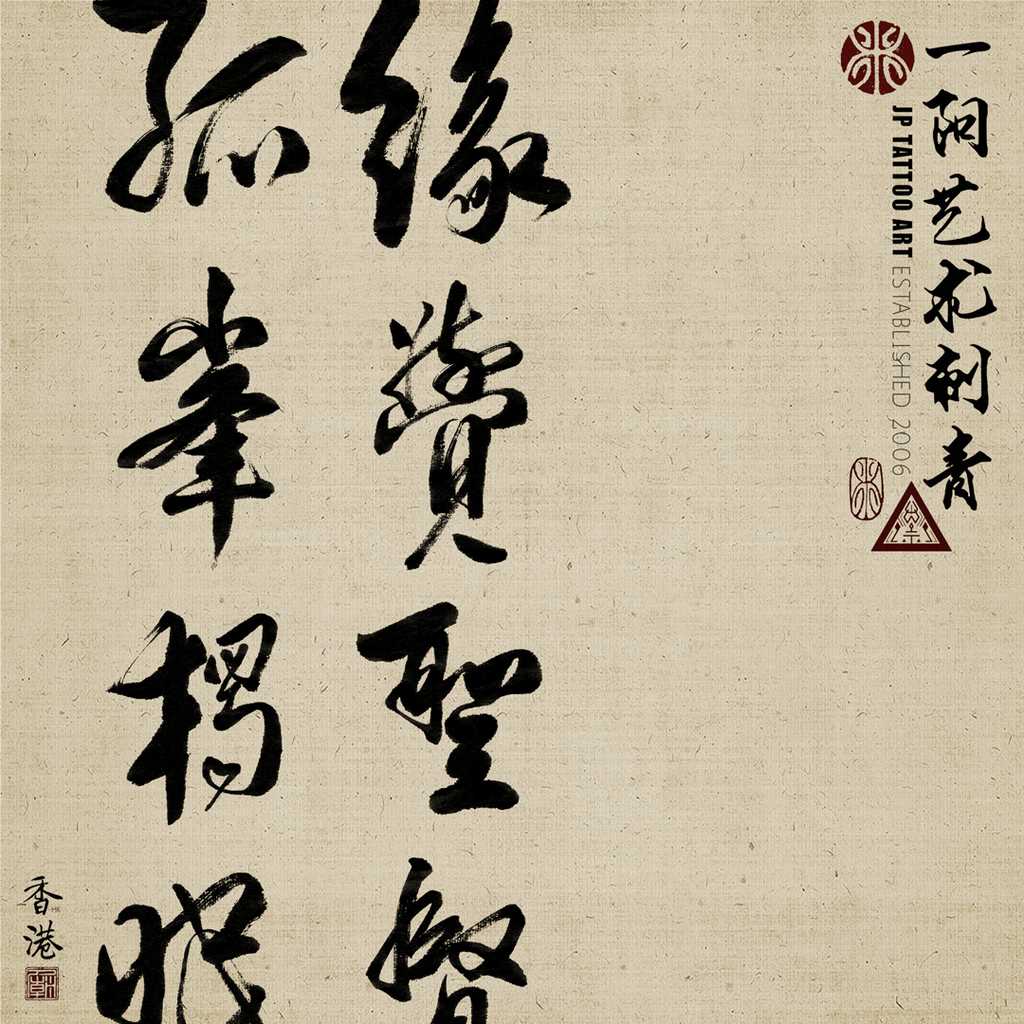 一阿艺术刺青
JP TATTOO ART ESTABLISHED 2006
緣覺聖賢
孤峯獨
香港